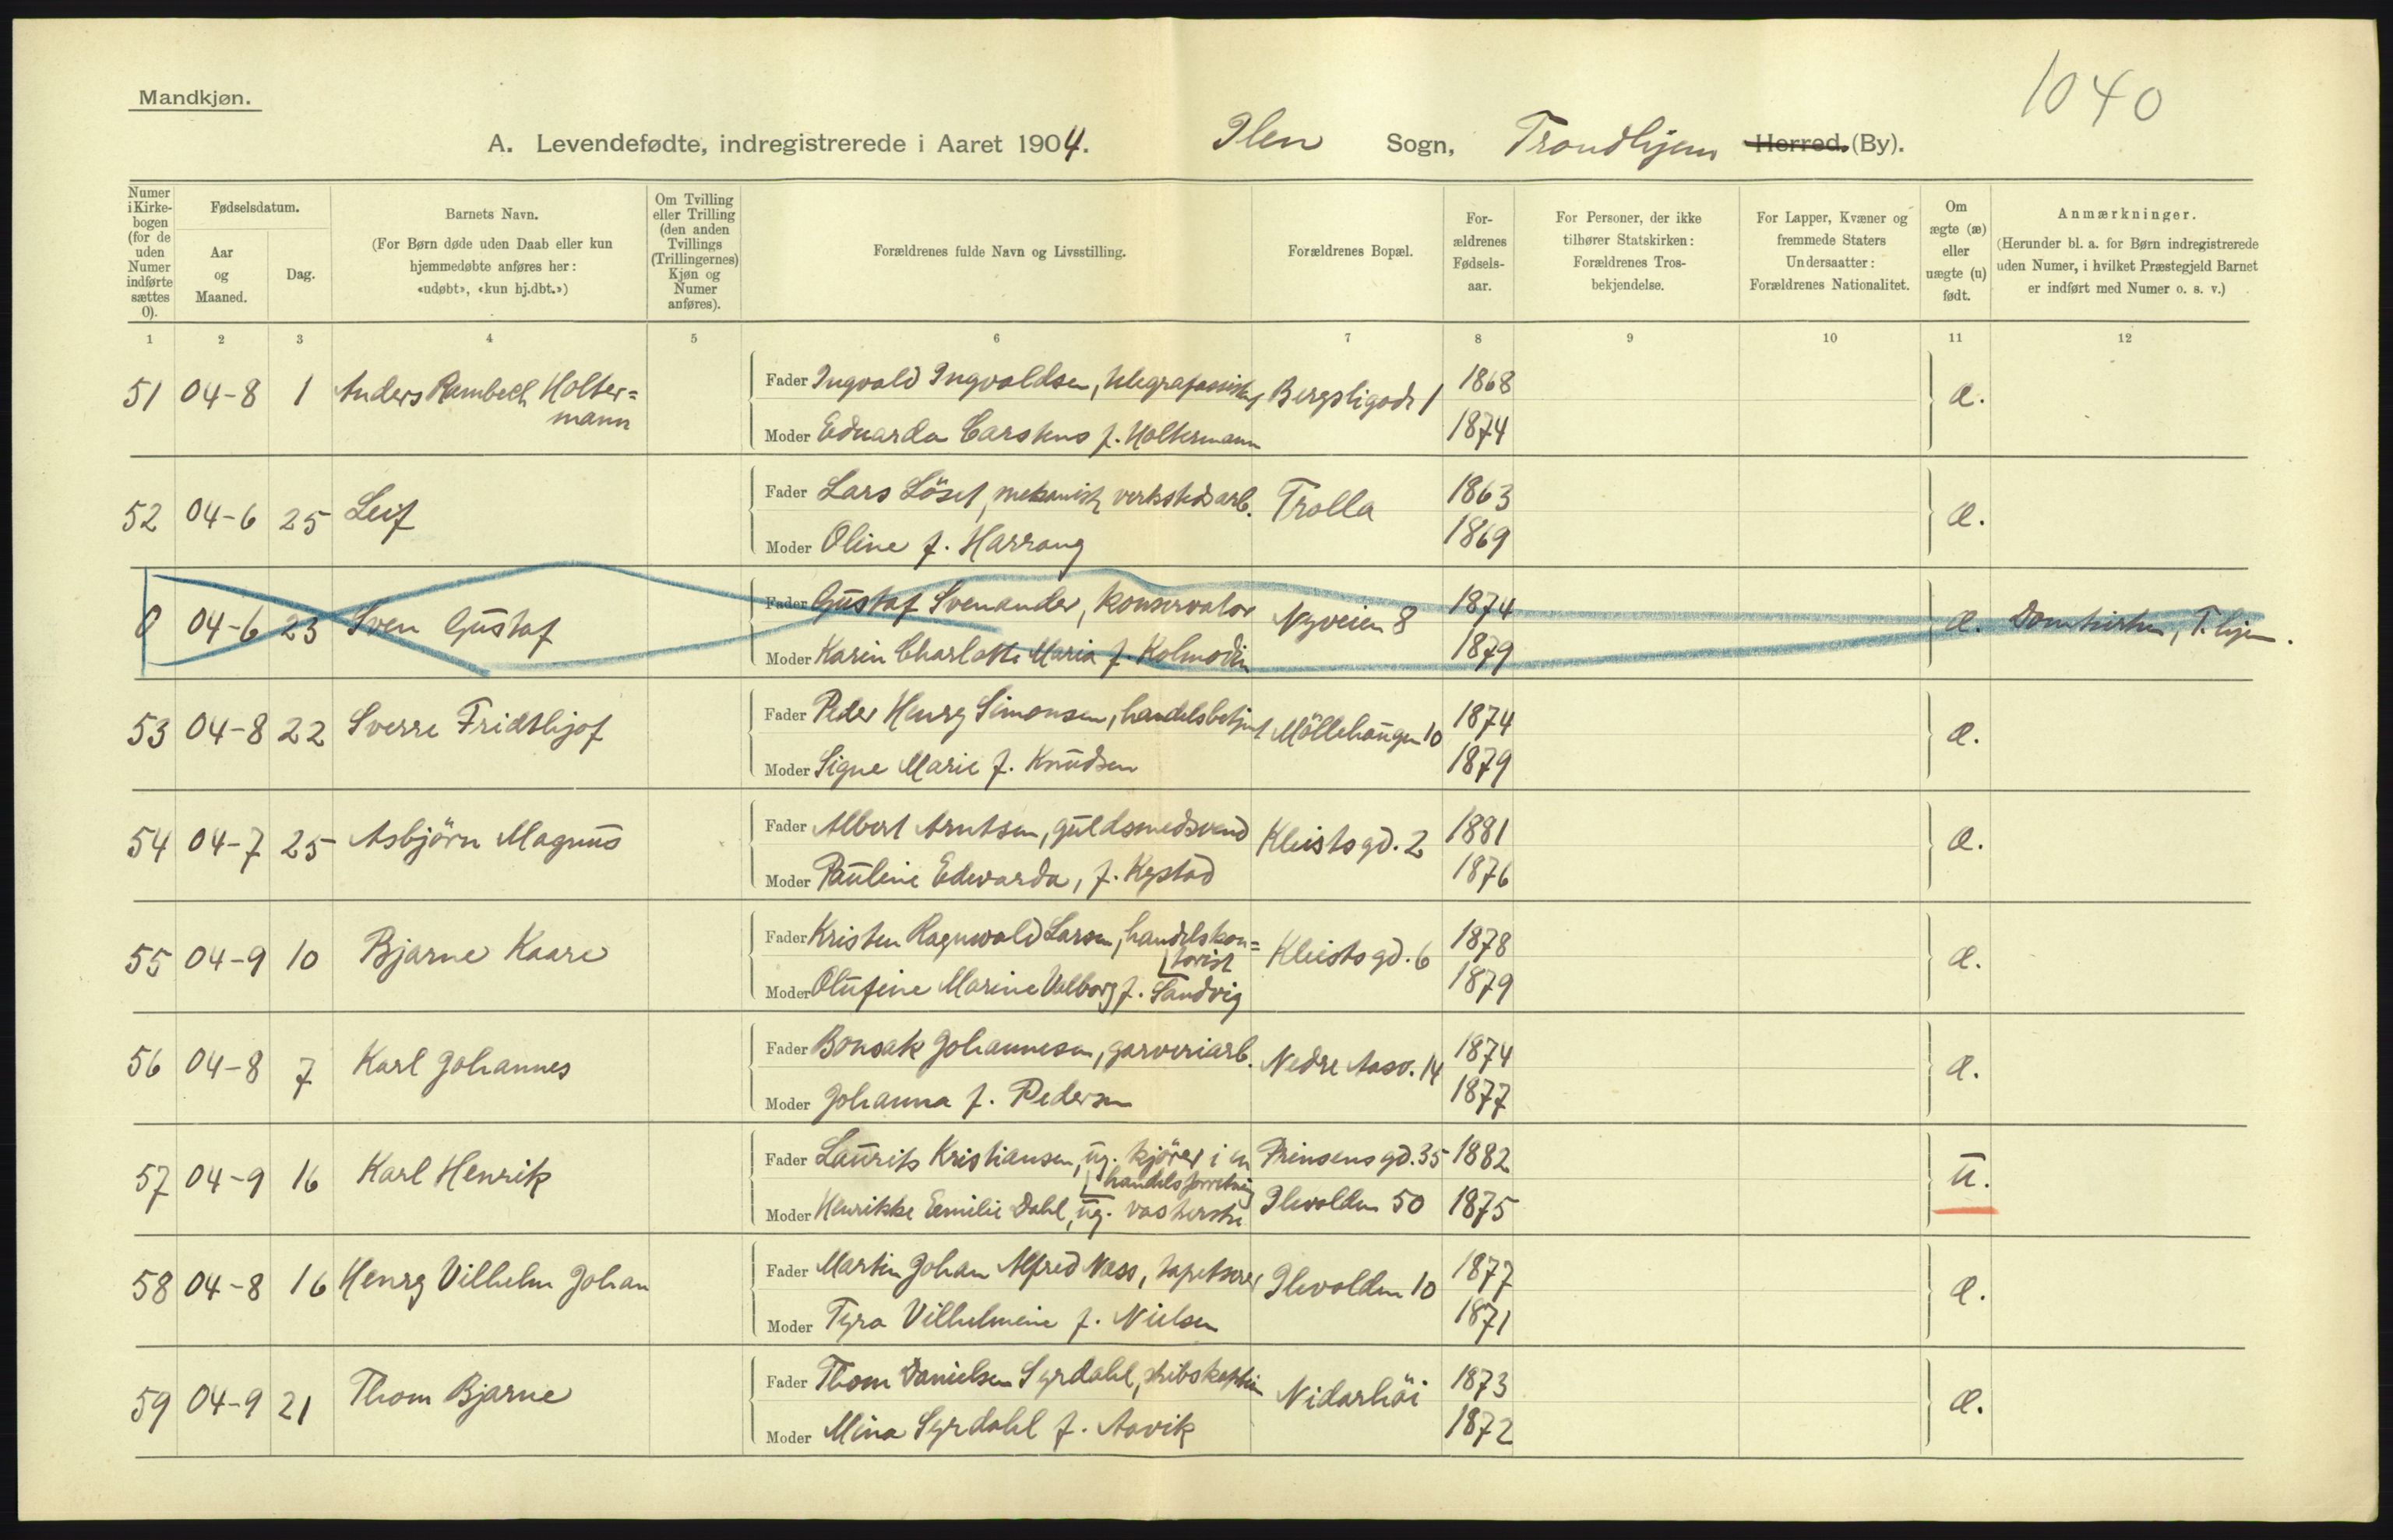 1040
Mandkjøn.
A. Levendefødte, indregistrerede i Aaret 1904. Ilen Sogn, Trondhjem Herred. (By).
Numer i Kirke-bogen (for de uden Numer indførte sættes 0).
Fødselsdatum.
Aar og Maaned.
Dag.
Barnets Navn.
(For Børn døde uden Daab eller kun hjemmedøbte anføres her: «udøbt», «kun hj.dbt.»)
Om Tvilling eller Trilling (den anden Tvillings (Trillingernes) Kjøn og Numer anføres).
Forældrenes fulde Navn og Livsstilling.
Forældrenes Bopæl.
For-ældrenes Fødsels-aar.
For Personer, der ikke tilhører Statskirken: Forældrenes Tros-bekjendelse.
For Lapper, Kvæner og fremmede Staters Undersaatter: Forældrenes Nationalitet.
Om ægte (æ) eller uægte (u) født.
Anmærkninger.
(Herunder bl. a. for Børn indregistrerede uden Numer, i hvilket Præstegjeld Barnet er indført med Numer o. s. v.)
1 2 3 4 5 6 7 8 9 10 11 12
51 04-8 1 Anders Rambech Holter=mann Fader Ingvald Ingvaldsen, Bergsligade 1 1868 æ.
Moder Eduarda Carstens f. Holtermann 1874
52 04-6 25 Leif Fader Lars Löset, mekanisk verkstedsarb. Trolla 1863 æ.
Moder Oline f. Harrang 1869
0 04-6 23 Sven Gustaf Fader Gustaf Svenander, konservator Nyveien 8 1874 æ. Domkirken, T.hjem.
Moder Karin Charlotte Maria f. Kolmodin 1879
53 04-8 22 Sverre Fridthjof Fader Peder Henry Simonsen, handelsbetjent Möllebaugen 10 1874 æ.
Moder Signe Marie f. Knudsen 1879
54 04-7 25 Asbjörn Magnus Fader Albert Arntsen, guldsmedsvend Kleistsgd. 2 1881 æ.
Moder Pauline Edvarda, f. Kystad 1876
55 04-9 10 Bjarne Kaare Fader Kristen Ragnwald Larsen, handelskon=torist Kleistsgd. 6 1878 æ.
Moder Olufine Marine Valborg f. Sandvig 1879
56 04-8 7 Karl Johannes Fader Bonsak Johannesen, garveriarb. Nedre Aasv. 14 1874 æ.
Moder Johanna f. Pedersen 1877
57 04-9 16 Karl Henrik Fader Laurits Kristiansen, ug. kjörer i en handelsforretning Prinsensgd. 35 1882 u.
Moder Henrikke Emilie Dahl, ug. vaskerske Ilevolden 50 1875
58 04-8 16 Henry Vilhelm Johan Fader Martin Johan Alfred Næss, tapetserer Ilevolden 10 1877 æ.
Moder Tyra Vilhelmine f. Nielsen 1871
59 04-9 21 Thom Bjarne Fader Thom Danielsen Syrdahl, skibskaptein Nidarhöi 1873 æ.
Moder Mina Syrdahl f. Aavik 1872